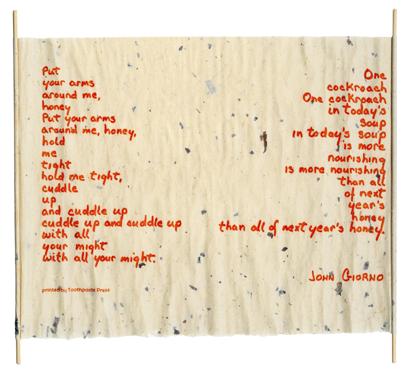 Put
your arms
around me,
honey
Put your arms
around me, honey,
hold
me
tight
hold me tight,
cuddle
up
and cuddle up
cuddle up and cuddle up
with all
your might
with all your might.
One
cockroach
One cockroach
in today's
soup
in today's soup
is more
nourishing
is more nourishing
than all
of next
year's
honey
than all of next year's honey.
JOHN GIORNO
printed by Toothpaste Press